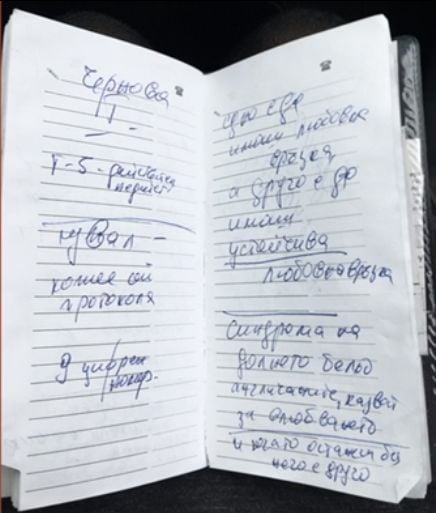 Чернова
I
I-5-
нувал -
копие от
протокола
9 цифрен
номер.
едно е да
имаш любовна
връзка
а друго е да
имаш
устойчива
любовна връзка
Синдрома на
долното бельо
англичаните, казват
за влюбването
и когато останеш без
него е друго